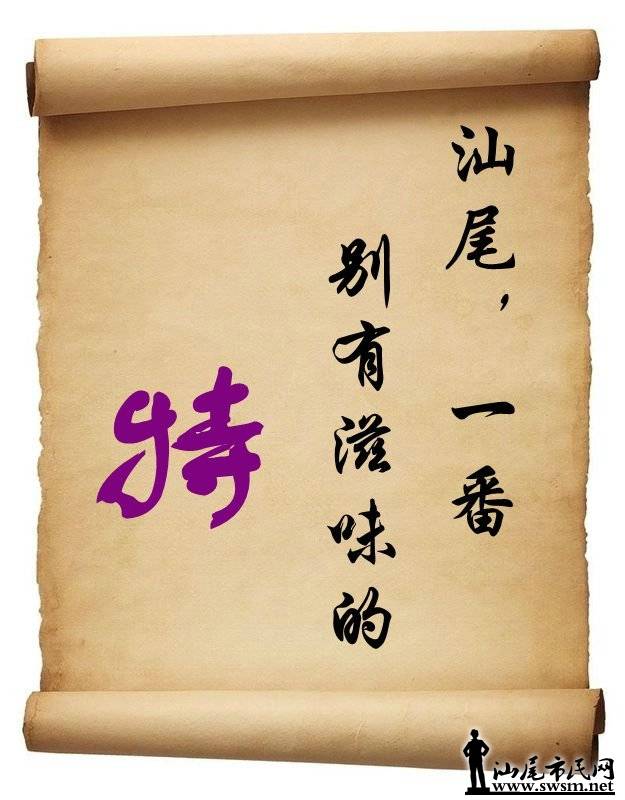 汕尾，一番
别有滋味的
特
汕尾市民网
www.swsm.net